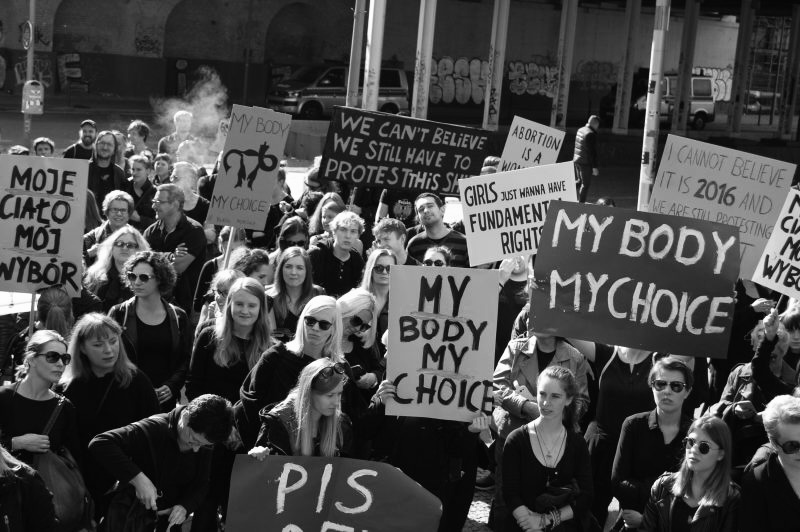 MOJE
CIAŁO
MÓJ
WYBÓR
MY BODY
MY CHOICE
WE CAN'T BELIEVE
WE STILL HAVE TO
PROTEST THIS
ABORTION
IS A
GIRLS JUST WANNA HAVE
FUNDAMENTAL
RIGHTS
I CANNOT BELIEVE
IT IS 2016
AND
WE ARE STILL PROTESTING
MY BODY
MY CHOICE
MY
BODY
MY
CHOICE
WYBÓR
PIS